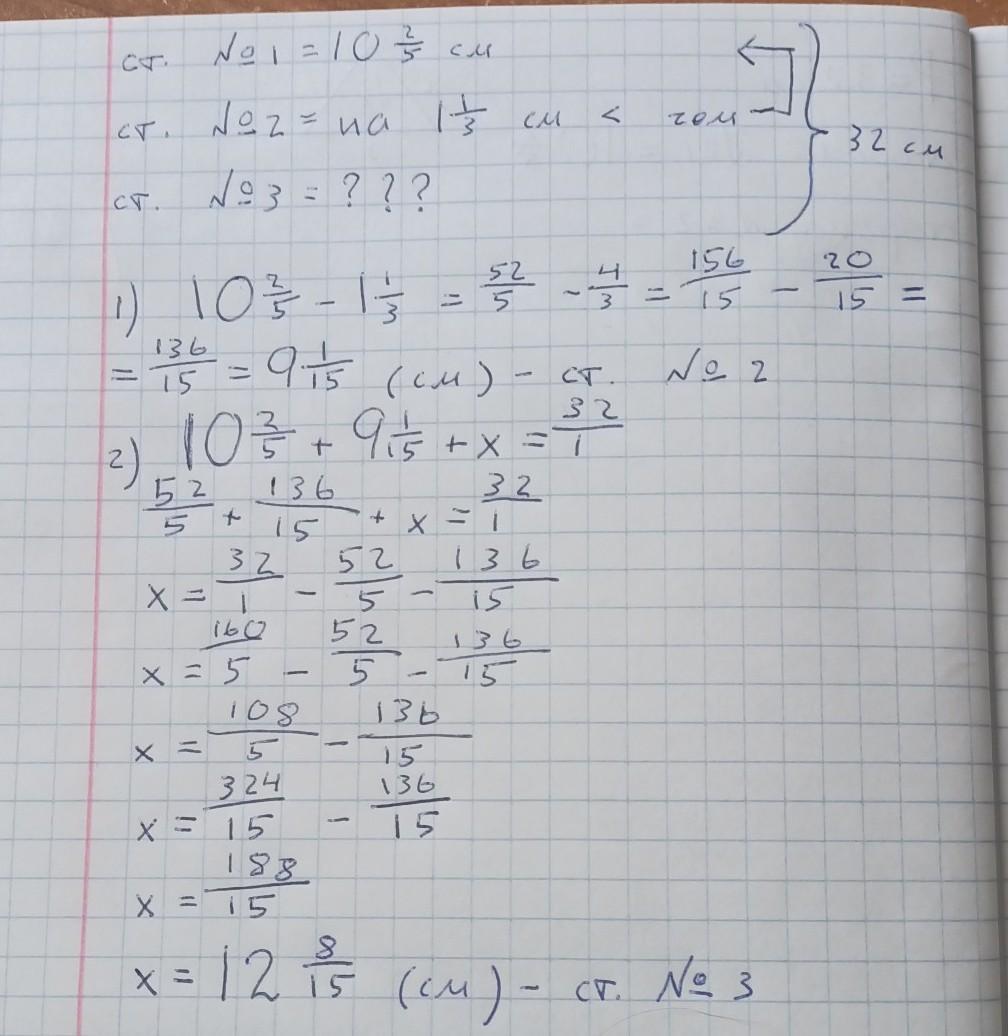 ст. №1 = 10 2/5 см
ст. №2 = на 1 1/3 см < чем
ст. №3 = ???
32 см
1) 10 2/5 - 1 1/3 = 52/5 - 4/3 = 156/15 - 20/15 =
= 136/15 = 9 1/15 (см) - ст. № 2
2) 10 2/5 + 9 1/15 + x = 32/1
52/5 + 136/15 + x = 32/1
x = 32/1 - 52/5 - 136/15
x = 160/5 - 52/5 - 136/15
x = 108/5 - 136/15
x = 324/15 - 136/15
x = 188/15
x = 12 8/15 (см) - ст. № 3